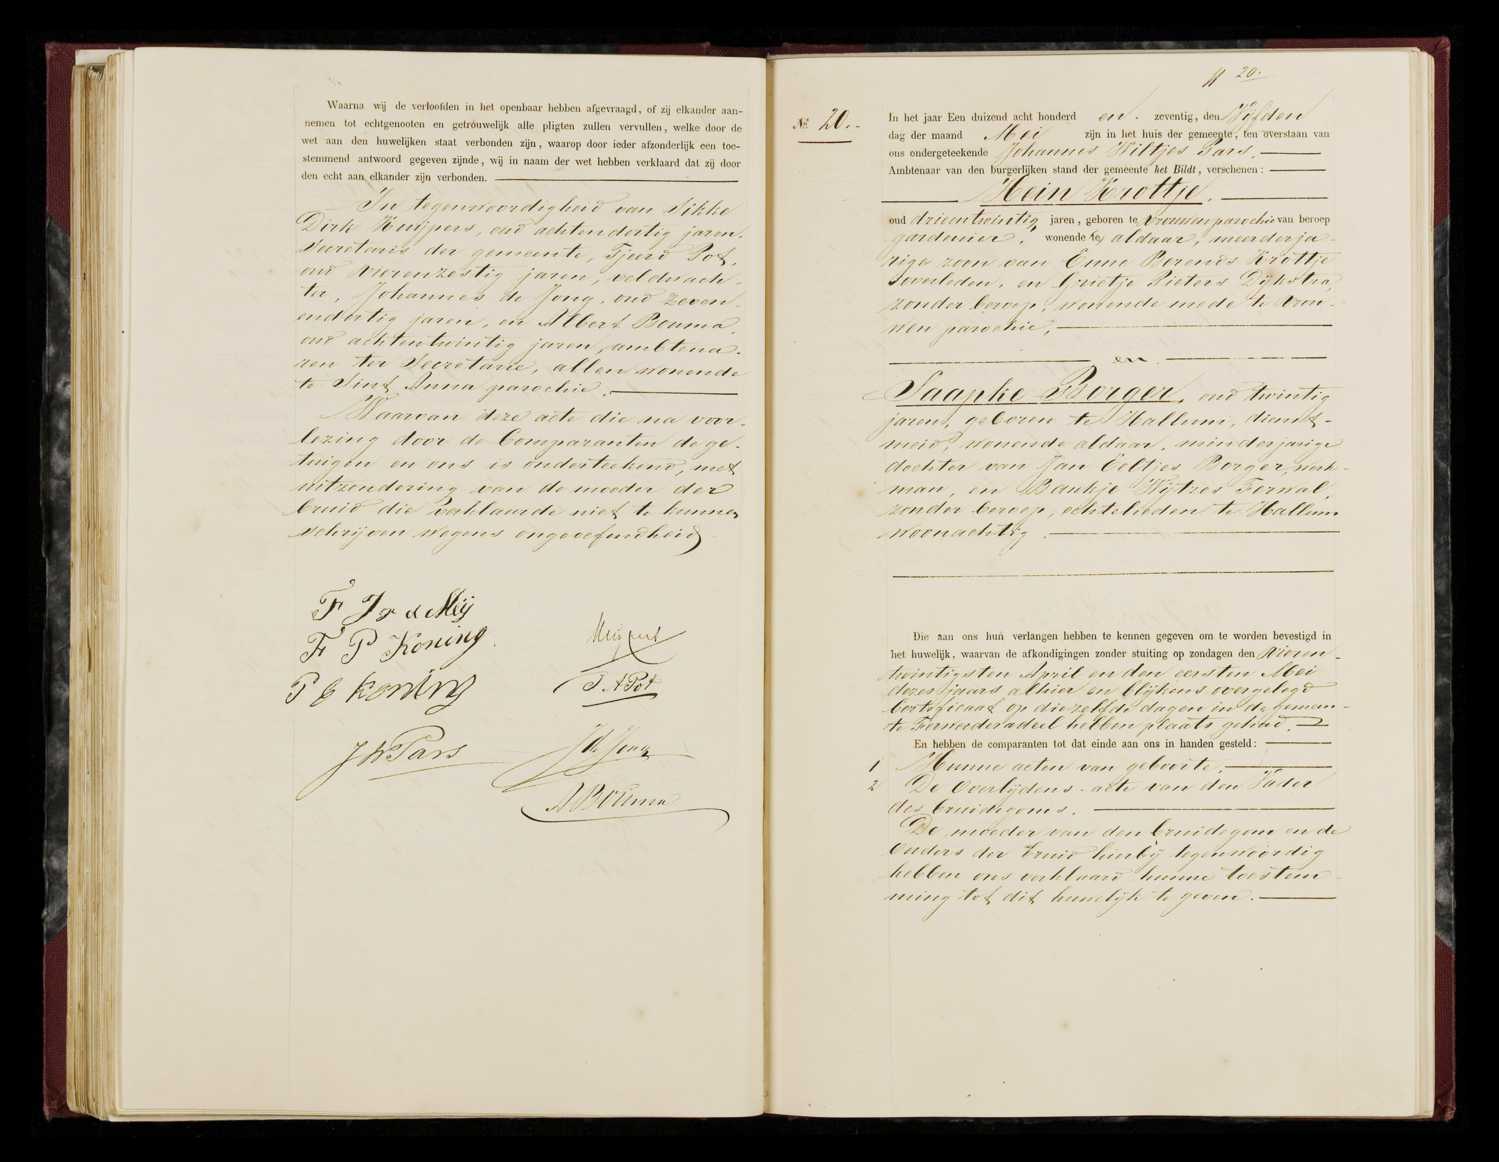 Waarna wij de verloofden in het openbaar hebben afgevraagd, of zij elkander aan-
nemen tot echtgenooten en getrouwelijk alle pligten zullen vervullen, welke door de
wet aan den huwelijken staat verbonden zijn, waarop door ieder afzonderlijk een toe-
stemmend antwoord gegeven zijnde, wij in naam der wet hebben verklaard dat zij door
den echt aan elkander zijn verbonden.
In tegenwoordigheid van Sikke
Dirk Kuijpers, oud achtendertig jaren,
Secretaris der gemeente, Tjeerd Pot,
oud vierenzestig jaren, veldwach-
ter, Johannes de Jong, oud zeven-
endertig jaren, en Albert Bouma,
oud achtentwintig jaren, ambtena-
ren ter Secretarie, allen wonende
te Sint Anna parochie.
Waarvan deze acte die na voor-
lezing door de Comparanten de ge-
tuigen en ons is onderteekend, met
uitzondering van de moeder der
bruid die verklaarde niet te kunnen
schrijven wegens ongeoefendheid
F J de Meij
F P Koning
P G Koning
T A Pot
J W Pars
J d Jong
A Bouma
20.
No. 20.
In het jaar Een duizend acht honderd en zeventig, den Vijfden
dag der maand Mei zijn in het huis der gemeente, ten overstaan van
ons ondergeteekende Johannes Wiltjes Pars,
Ambtenaar van den burgerlijken stand der gemeente het Bildt, verschenen:
Hein Krottje,
oud drieentwintig jaren, geboren te Vrouwenparochie van beroep
gardenier, wonende te aldaar, meerderja-
rige zoon van Enne Berends Krottje
overleden, en Grietje Pieters Dijkstra,
zonder beroep, wonende mede te Vrou-
wen parochie,
en
Saapke Borger, oud twintig
jaren, geboren te Hallum, dienst-
meid, wonende aldaar, minderjarige
dochter van Jan Eeltjes Borger, werk-
man, en Baukje Wijtzes Ferwal,
zonder beroep, echtelieden te Hallum
woonachtig.
Die aan ons hun verlangen hebben te kennen gegeven om te worden bevestigd in
het huwelijk, waarvan de afkondigingen zonder stuiting op zondagen den Vieren-
twintigsten April en den eersten Mei
dezes jaars alhier en blijkens overgelegd
Certificaat op diezelfde dagen in de gemeen-
te Ferwerderadeel hebben plaats gehad.
En hebben de comparanten tot dat einde aan ons in handen gesteld:
1 Hunne acten van geboorte,
2 De Overlijdens-acte van den Vader
des bruidegoms.
De moeder van den bruidegom en de
Ouders der bruid hierbij tegenwoordig
hebben ons verklaard hunne toestem-
ming tot dit huwelijk te geven.